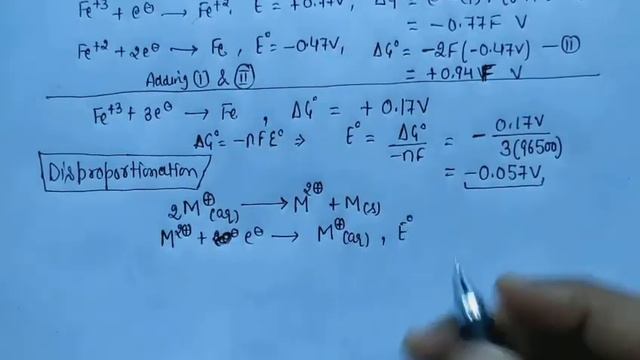 Fe⁺³ + e⊖ → Fe⁺², E° = +0.77V,
= −0.77F V
Fe⁺² + 2e⊖ → Fe, E° = −0.47V, ΔG° = −2F(−0.47V) — II
Adding I & II = +0.94F V
Fe⁺³ + 3e⊖ → Fe, ΔG° = +0.17V
ΔG° = −nFE° ⇒ E° = ΔG°/−nF = −0.17V/3(96500)
Disproportionation = −0.057V,
2M⊕(aq) → M²⊕ + M(s)
M²⊕ + e⊖ → M⊕(aq), E°